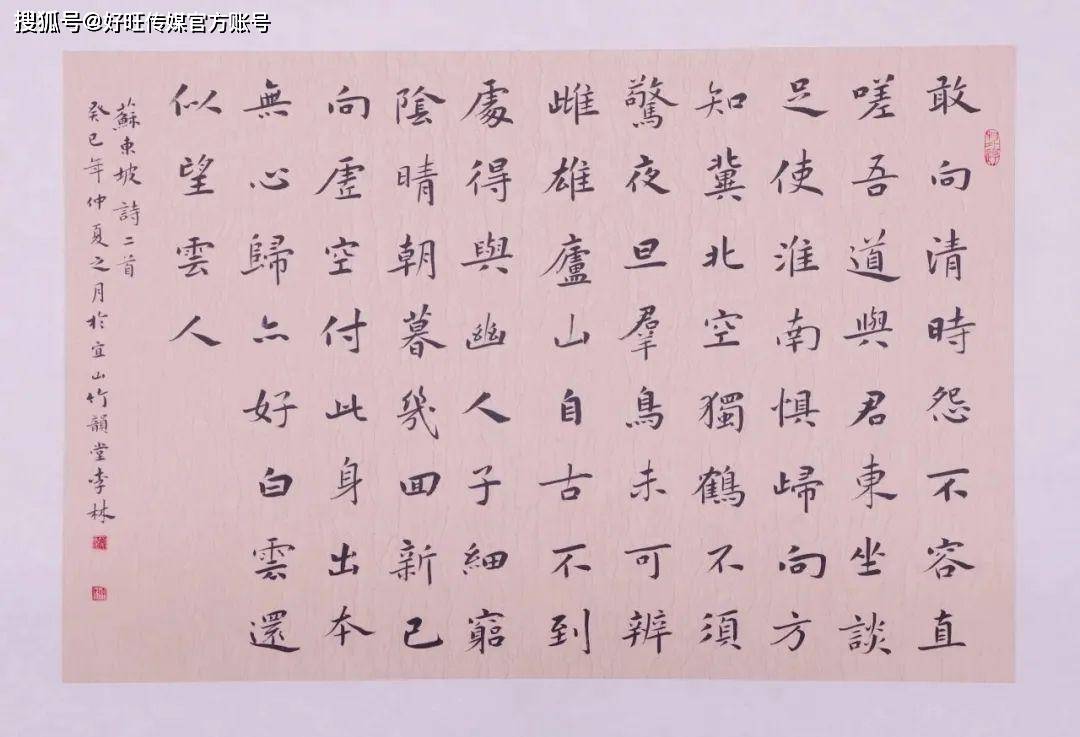 搜狐号@好旺传媒官方账号
敢向清時怨不容直
嗟吾道與君東坐談
足使淮南惧歸向方
知冀北空獨鶴不須
驚夜旦羣鳥未可辨
雌雄廬山自古不到
處得與幽人子細窮
陰晴朝暮幾回新已
向虛空付此身出本
無心歸亦好白雲還
似望雲人
蘇東坡詩二首
癸巳年仲夏之月於宜山竹韻堂李林